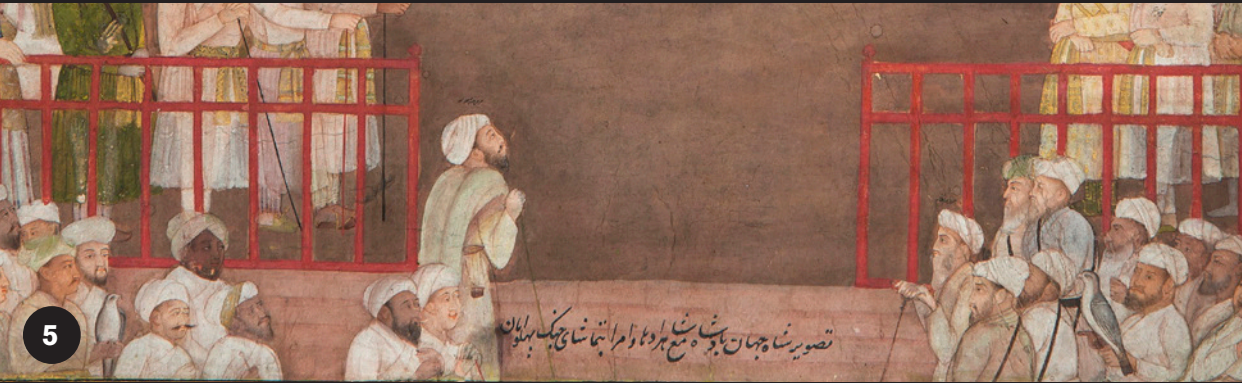 تصویر شاه جهان بادشاه مع شاهزادها و امرا بتماشای جنگ پهلوانان
5